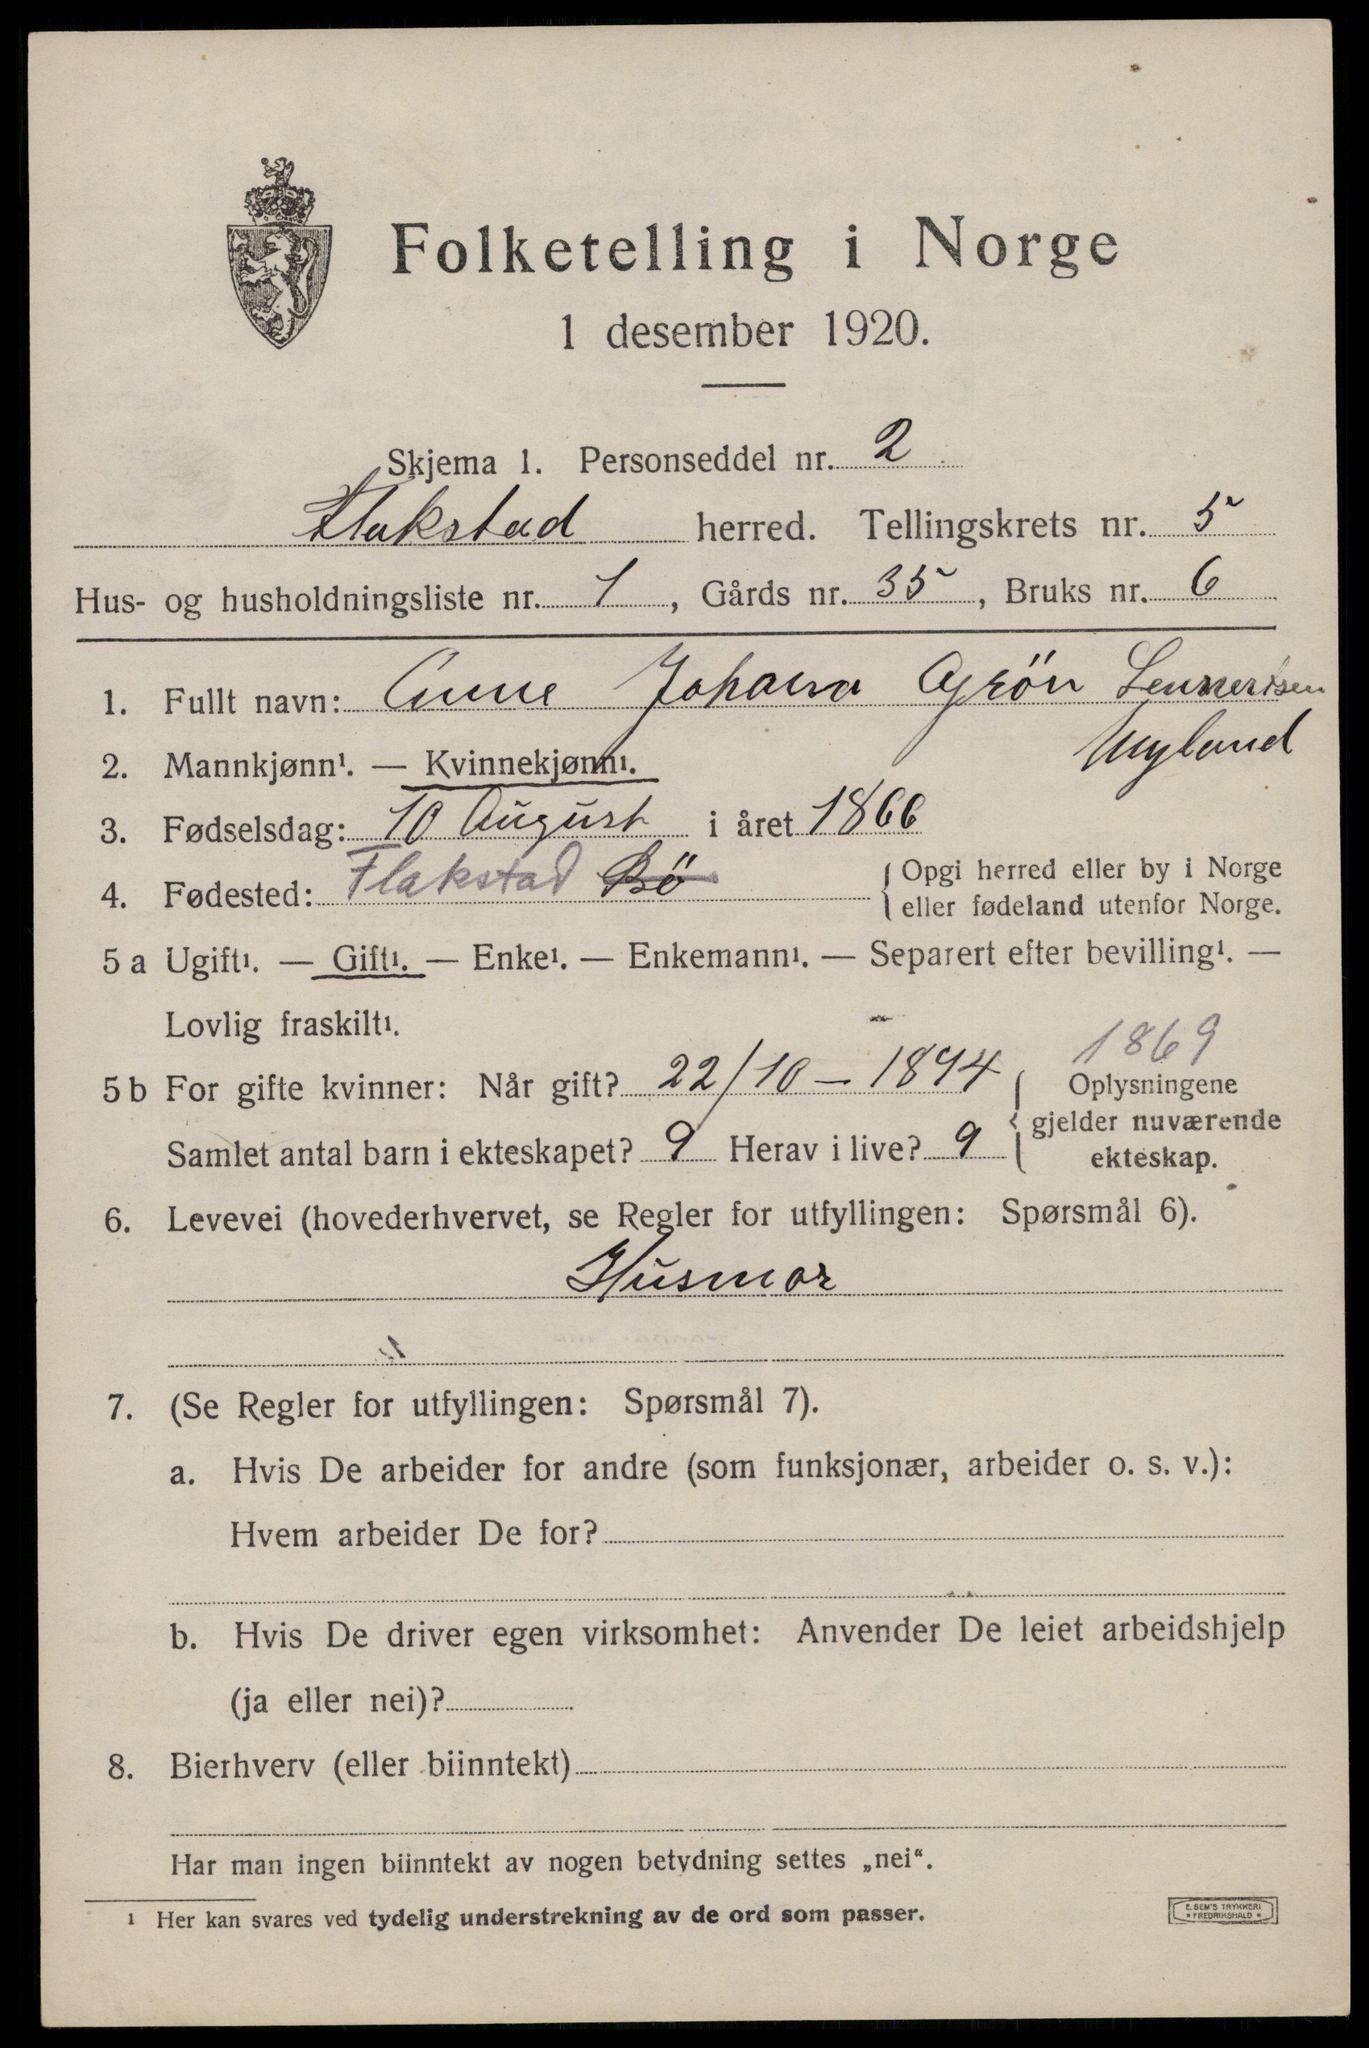 Folketelling i Norge
1 desember 1920.
Skjema 1. Personseddel nr. 2
Flakstad herred. Tellingskrets nr. 5
Hus- og husholdningsliste nr. 1, Gårds nr. 35, Bruks nr. 6
1. Fullt navn: Anne Johanna Grön Lennertsen
Myland
2. Mannkjønn¹. — Kvinnekjønn¹.
3. Fødselsdag: 10 August i året 1866
4. Fødested: Flakstad Bö
Opgi herred eller by i Norge
eller fødeland utenfor Norge.
5 a Ugift¹. — Gift¹. — Enke¹. — Enkemann¹. — Separert efter bevilling¹. —
Lovlig fraskilt¹.
1869
5 b For gifte kvinner: Når gift? 22/10 - 1894
Samlet antal barn i ekteskapet? 9 Herav i live? 9
Oplysningene
gjelder nuværende
ekteskap.
6. Levevei (hovederhvervet, se Regler for utfyllingen: Spørsmål 6).
Husmor
7. (Se Regler for utfyllingen: Spørsmål 7).
a. Hvis De arbeider for andre (som funksjonær, arbeider o. s. v.):
Hvem arbeider De for?
b. Hvis De driver egen virksomhet: Anvender De leiet arbeidshjelp
(ja eller nei)?
8. Bierhverv (eller biinntekt)
Har man ingen biinntekt av nogen betydning settes „nei“.
¹ Her kan svares ved tydelig understrekning av de ord som passer.
E. SEM'S TRYKKERI
* FREDRIKSHALD *